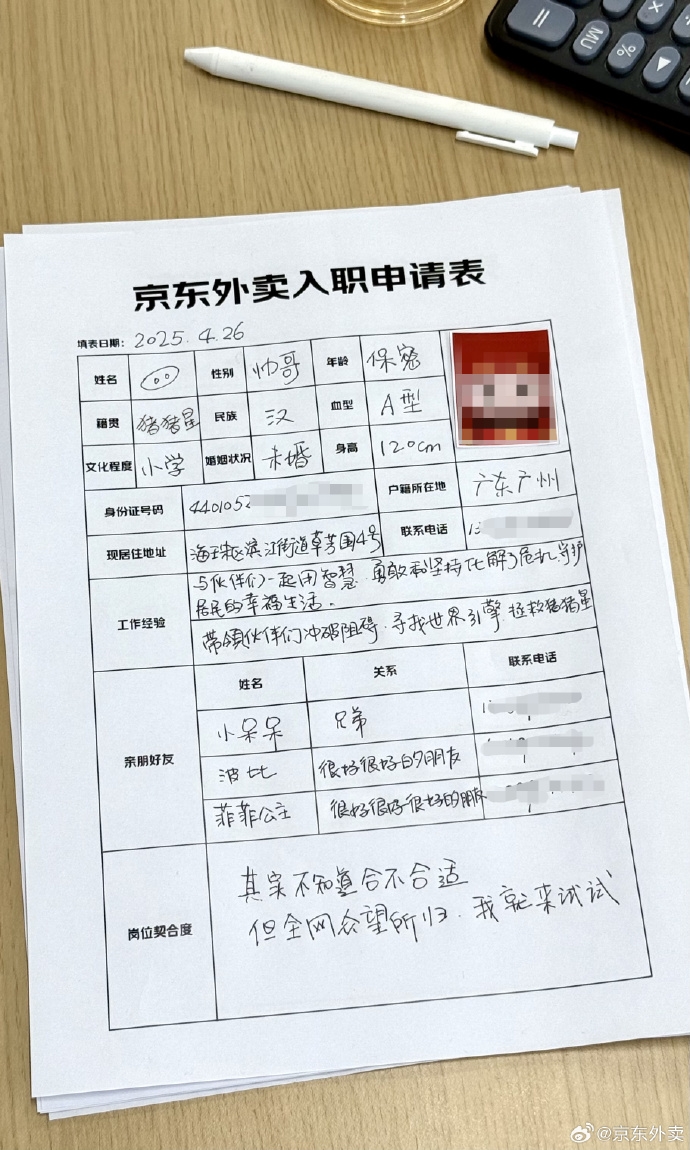 MU
%
京东外卖入职申请表
填表日期: 2025.4.26
姓名 性别 帅哥 年龄 保密
籍贯 猪猪星 民族 汉 血型 A型
文化程度 小学 婚姻状况 未婚 身高 120cm
身份证号码 4401052 户籍所在地 广东广州
现居住地址 海珠区滨江街道草芳围4号 联系电话 13
工作经验 与伙伴们一起用智慧、勇敢和坚持化解了危机,守护
居民的幸福生活。
带领伙伴们冲破阻碍、寻找世界引擎,拯救猪猪星
亲朋好友 姓名 关系 联系电话
小呆呆 兄弟
波比 很好很好的朋友
菲菲公主 很好很好很好的朋友
岗位契合度 其实不知道合不合适
但全网众望所归、我就来试试
@京东外卖